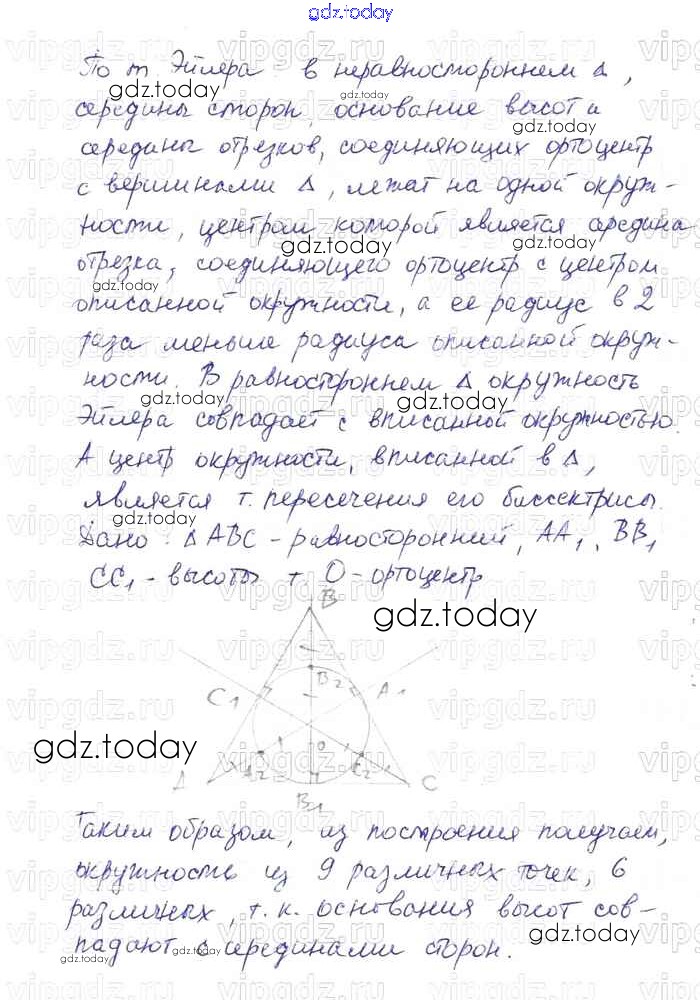 gdz.today
По т Эйлера в неравностороннем Δ,
середины сторон, основание высот и
середины отрезков, соединяющих ортоцентр
с вершинами Δ, лежат на одной окруж-
ности, центром которой является середина
отрезка, соединяющего ортоцентр с центром
описанной окружности, а ее радиус в 2
раза меньше радиуса описанной окруж-
ности. В равностороннем Δ окружность
Эйлера совпадает с вписанной окружностью.
А центр окружности, вписанной в Δ,
является т. пересечения его биссектрисы.
Дано: ΔABC - равносторонний, AA1, BB1
CC1 - высоты т. O - ортоцентр
B
C1 B2 A1
O
A A2 C2 C
B1
Таким образом, из построения получаем,
окружность из 9 различных точек, 6
различных, т.к. основания высот сов-
падают с серединами сторон.